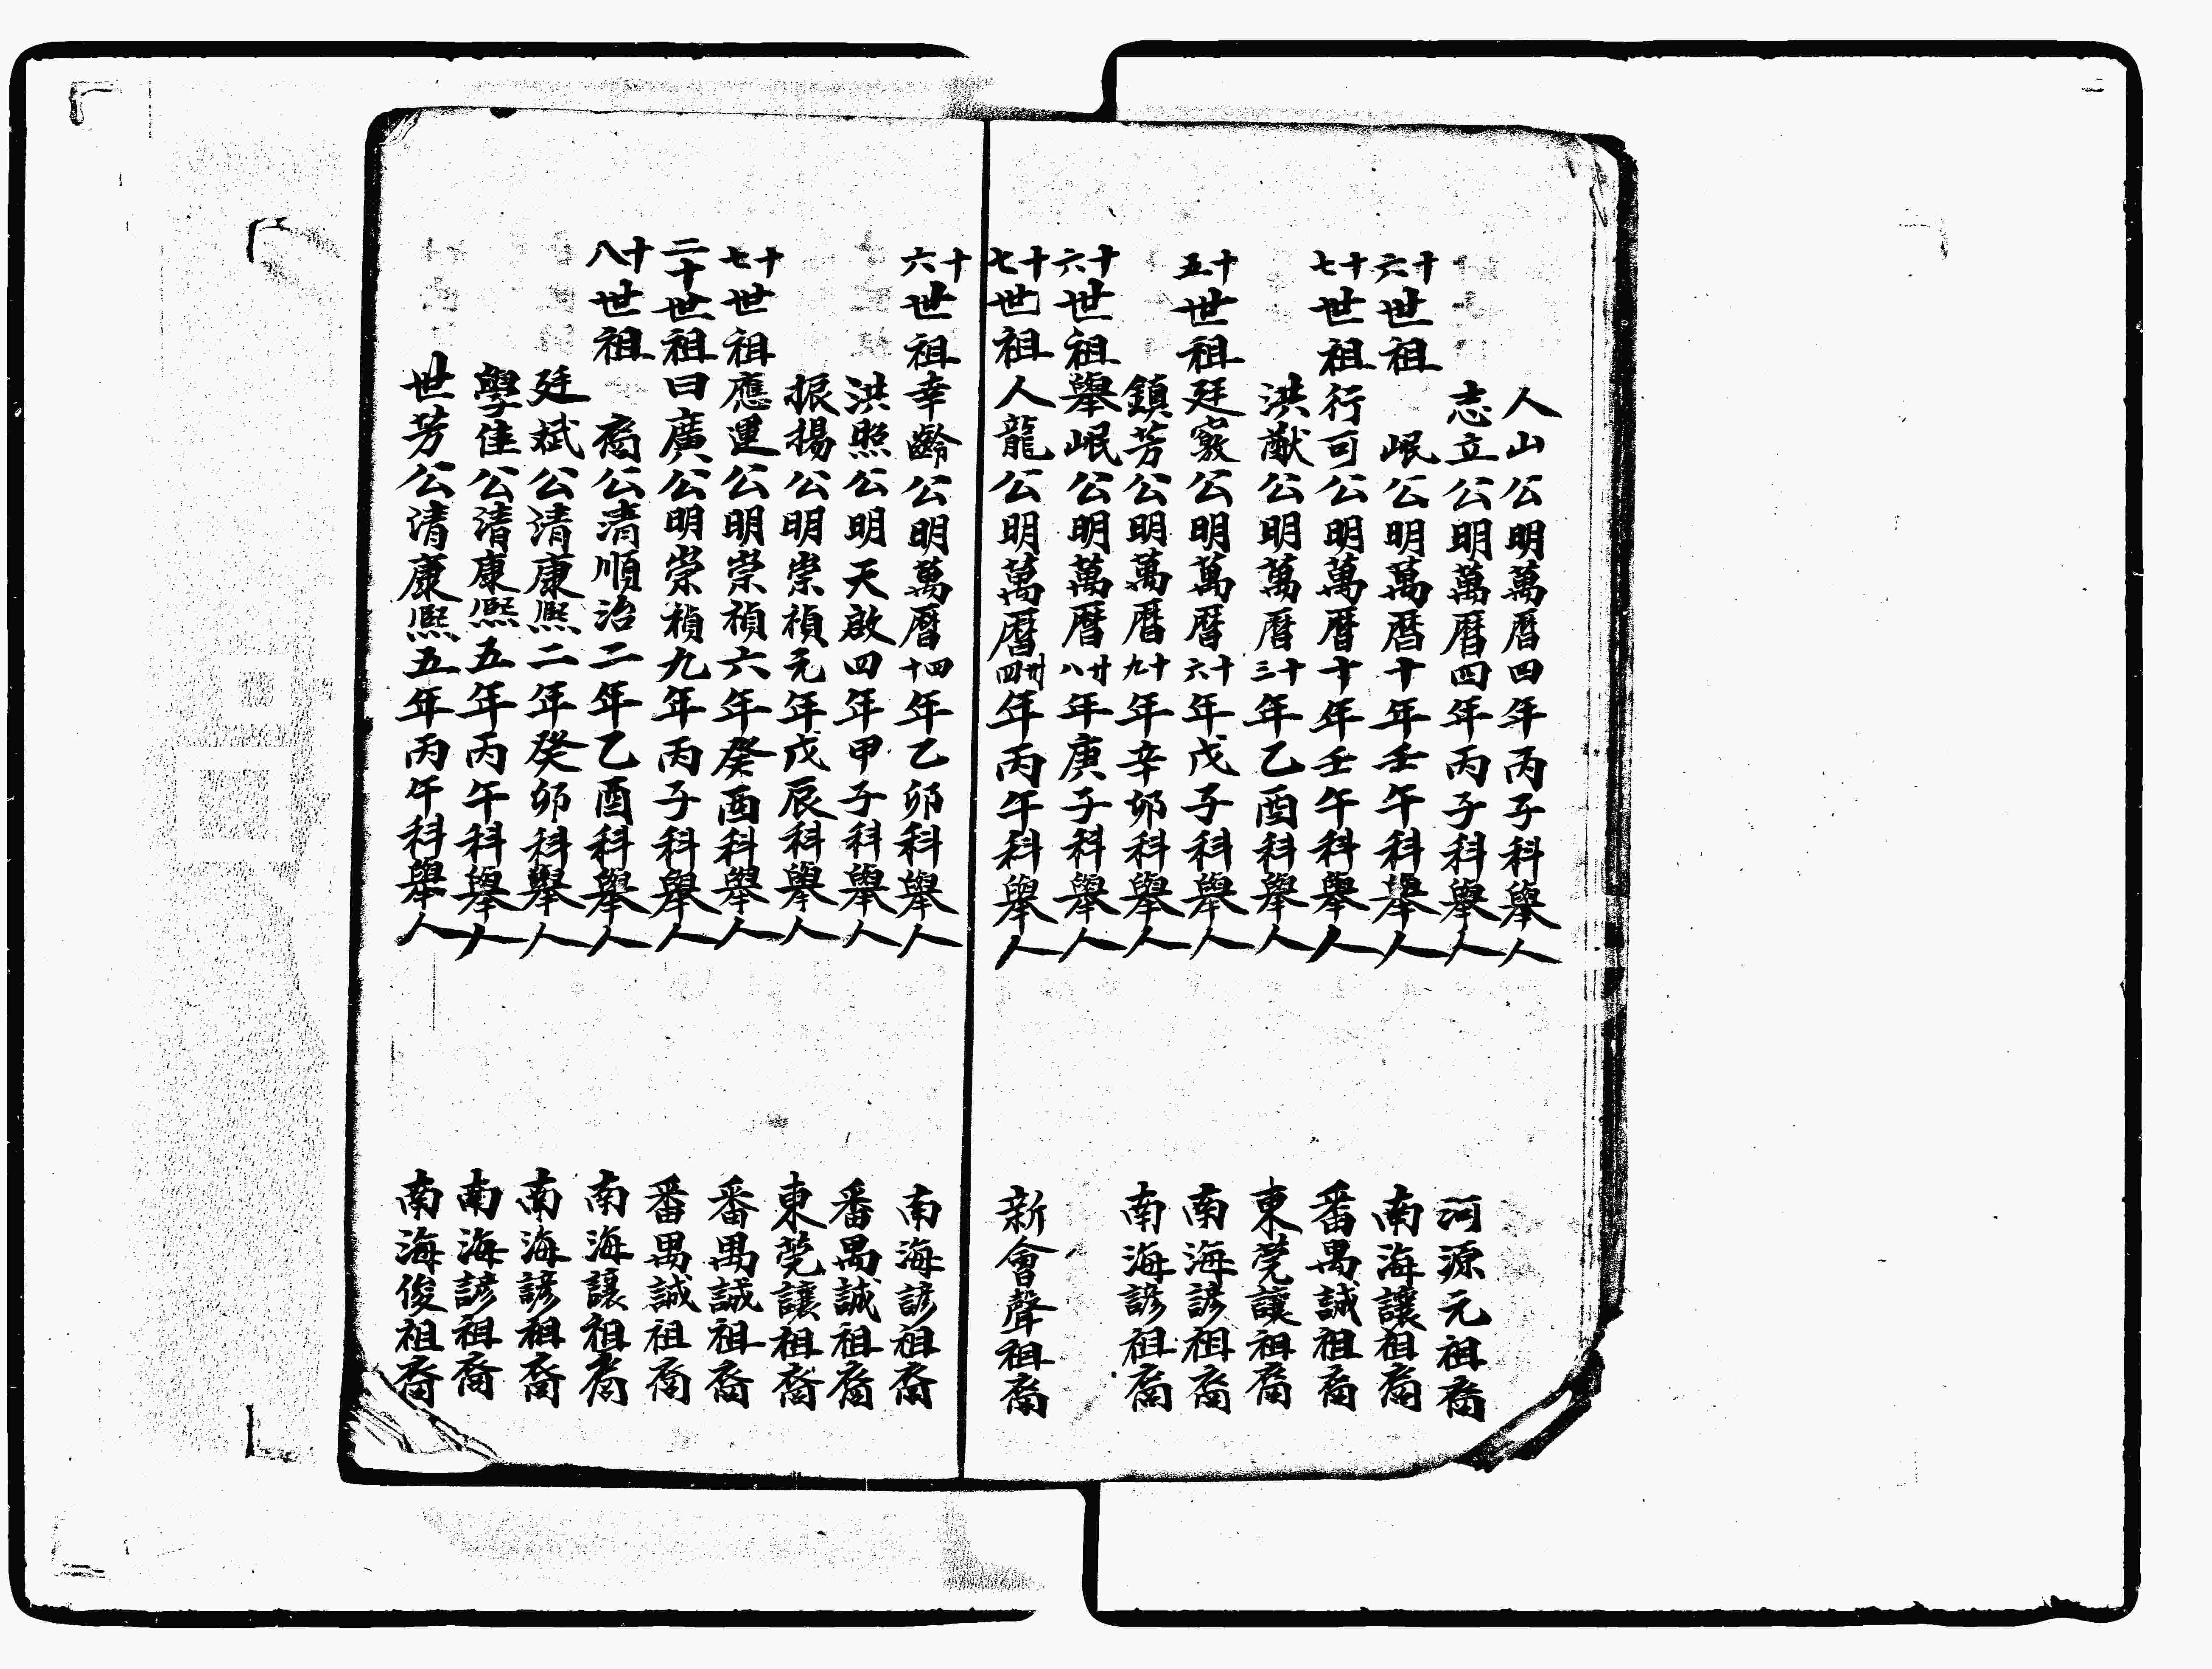 人山公明萬曆四年丙子科舉人
志立公明萬曆四年丙子科舉人 河源元祖裔
十六世祖 岷公明萬曆十年壬午科舉人 南海讓祖裔
十七世祖行可公明萬曆十年壬午科舉人 番禺誠祖裔
洪猷公明萬曆十三年乙酉科舉人 東莞讓祖裔
十五世祖廷公明萬曆十六年戊子科舉人 南海諺祖裔
鎮芳公明萬曆十九年辛卯科舉人 南海諺祖裔
十六世祖舉岷公明萬曆廿八年庚子科舉人
十七世祖人龍公明萬曆卅四年丙午科舉人 新會聲祖裔
十六世祖幸齡公明萬曆四十年乙卯科舉人 南海諺祖裔
洪照公明天啟四年甲子科舉人 番禺誠祖裔
振揚公明崇禎元年戊辰科舉人 東莞讓祖裔
十七世祖應運公明崇禎六年癸酉科舉人 番禺誠祖裔
二十世祖曰廣公明崇禎九年丙子科舉人 番禺誠祖裔
十八世祖 裔公清順治二年乙酉科舉人 南海讓祖裔
廷斌公清康熙二年癸卯科舉人 南海諺祖裔
學佳公清康熙五年丙午科舉人 南海諺祖裔
世芳公清康熙五年丙午科舉人 南海俊祖裔